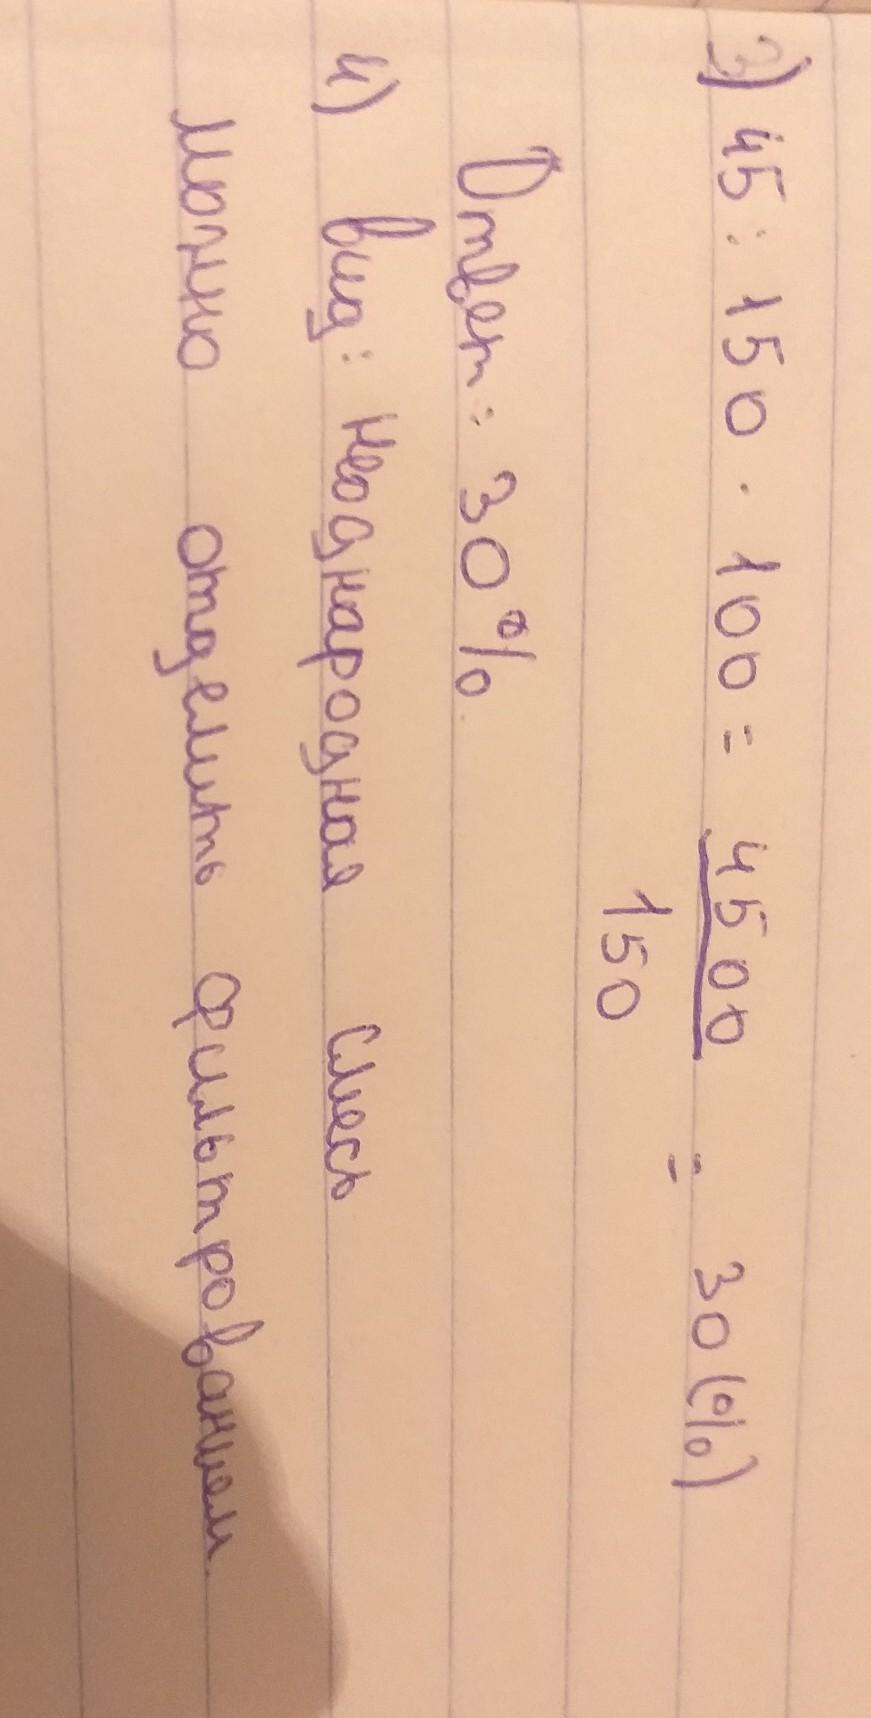 3) 45 : 150 · 100 = 4500 = 30 (%)
150
Ответ: 30%.
4) вид: неоднародная смесь
можно отделить фильтрованием.